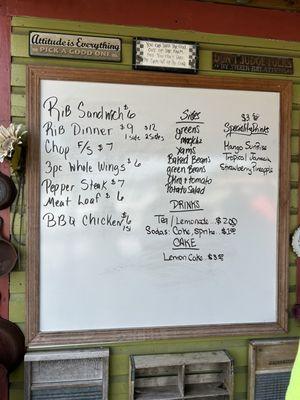 Attitude is Everything
PICK A GOOD ONE
YOU CAN TAKE THE GIRL
OUT OF THE
DON'T JUDGE FOLKS
BY THEIR RELATIVES
Rib Sandwich $6
Rib Dinner $9 $12
1 side 2 sides
Chop F/S $7
3pc Whole Wings $6
Pepper Steak $7
Meat Loaf $6
BBQ Chicken $6
Sides
greens
yams
Baked Beans
green Beans
Okra + tomato
Potato Salad
DRINKS
Tea / Lemonade...$2.00
Sodas: Coke, Sprite...$1.00
CAKE
Lemon Cake...$3.00
$3.00
Specialty Drinks
Mango Sunrise
Tropical Jamaica
Strawberry Pineapple